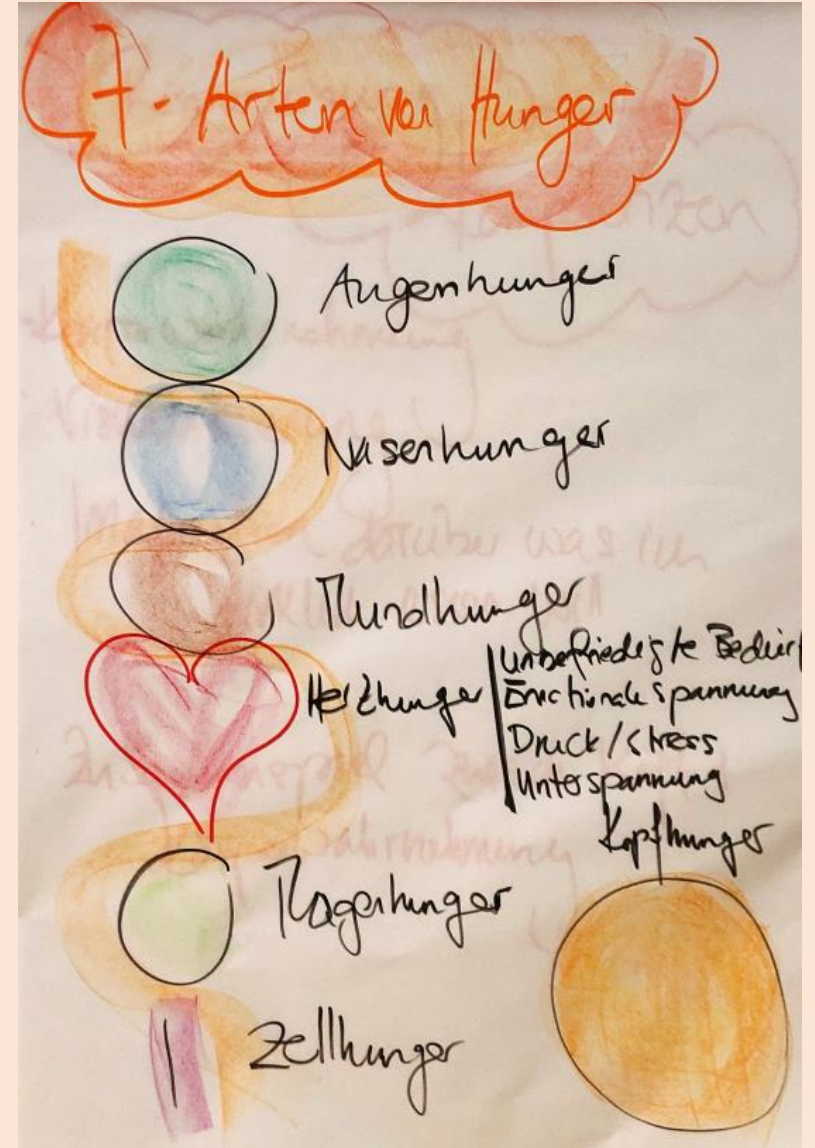 7- Arten von Hunger
Augenhunger
Nasenhunger
Mundhunger
Herzhunger
Unbefriedigte Bedürf
Emotionale Spannung
Druck/Stress
Unterspannung
Kopfhunger
Magenhunger
Zellhunger